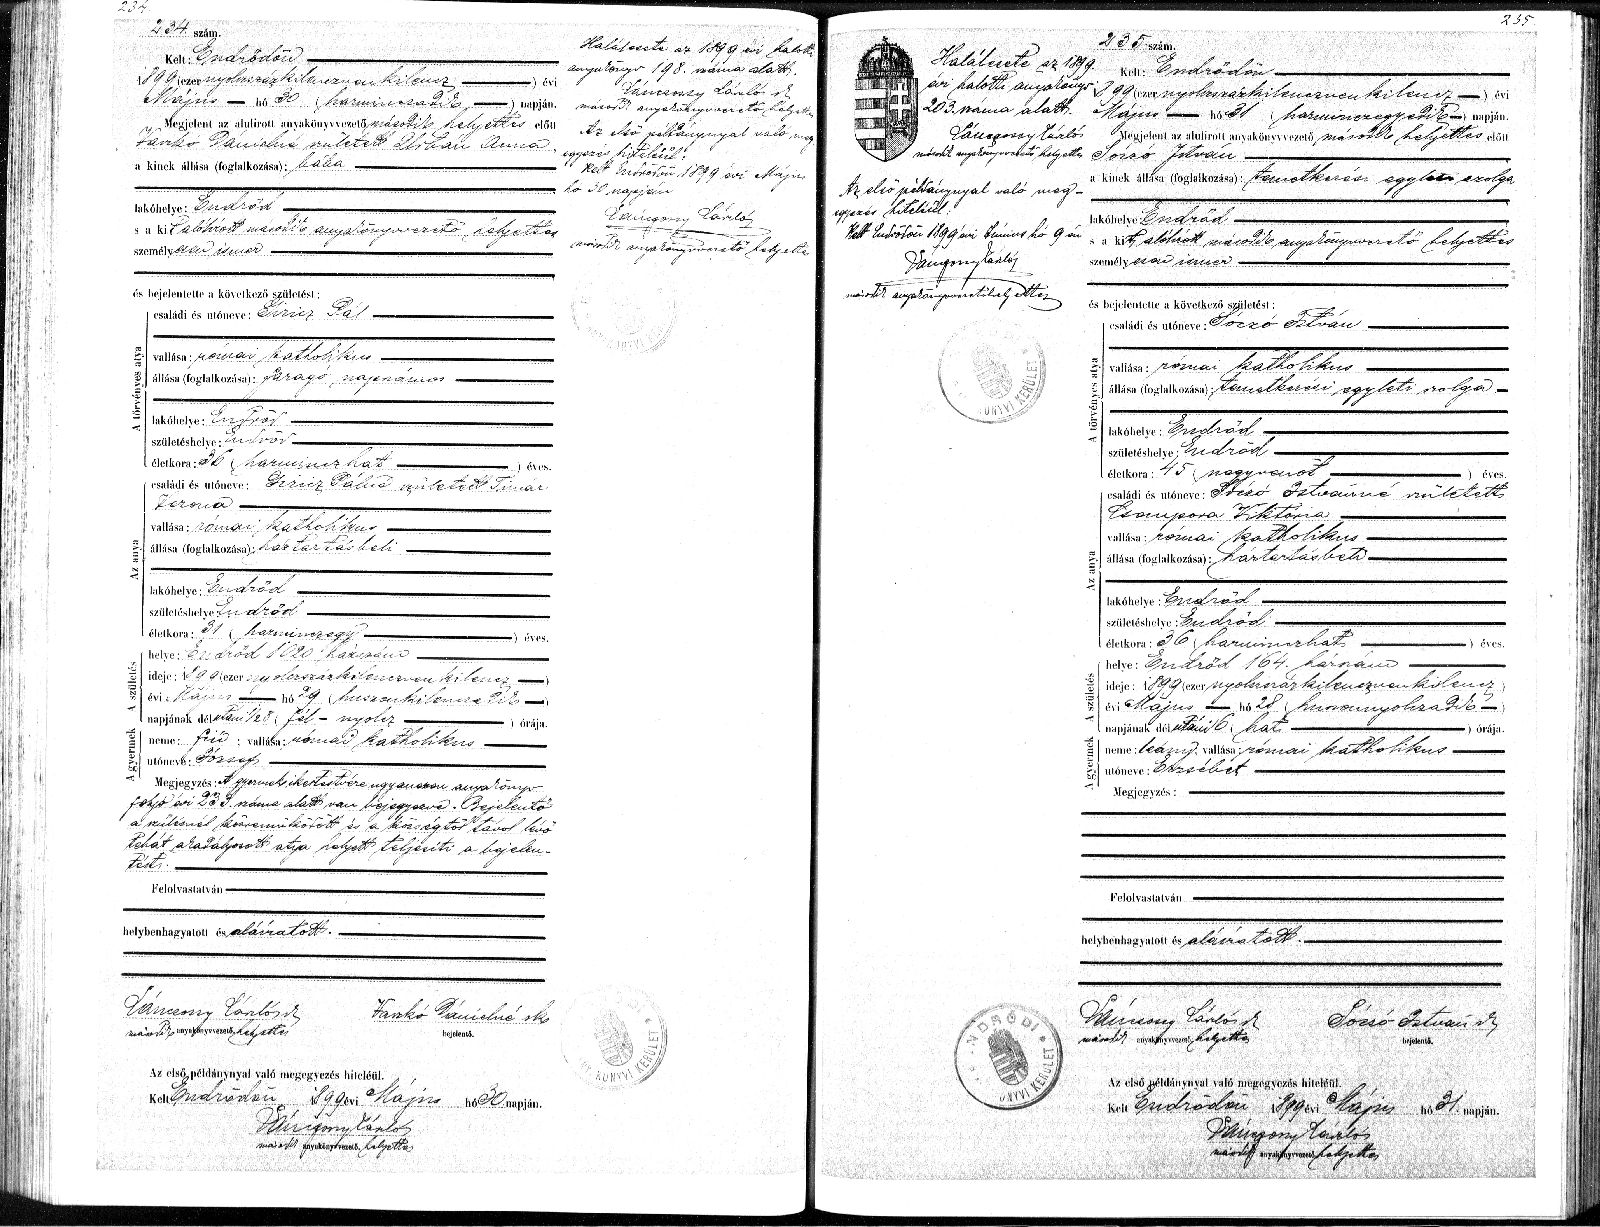 234
234. szám.
Kelt: Endrődön
1899 (ezer nyolcszázkilenczvenkilencz) évi
Május hó 30 (harminczadik) napján.
Megjelent az alulirott anyakönyvvezető második helyettes előtt
Dánielné született Urbán Anna
a kinek állása (foglalkozása): bába
lakóhelye: Endrőd
s a kit alólirott második anyakönyvvezető helyettes
személyesen ismer
és bejelentette a következő születést:
A törvényes atya
családi és utóneve: Giricz Pál
vallása: római katholikus
állása (foglalkozása): napszámos
lakóhelye: Endrőd
születéshelye: Endrőd
életkora: 36 (harminczhat) éves.
Az anya
családi és utóneve: Giricz Pálné született Timár
vallása: római katholikus
állása (foglalkozása): háztartásbeli
lakóhelye: Endrőd
születéshelye: Endrőd
életkora: 31 (harminczegy) éves.
A születés
helye: Endrőd 1020 házszám
ideje: 1899 (ezer nyolcszázkilenczvenkilencz)
évi Május hó 29 (huszonkilenczedik)
napjának délután 1/2 8 (fél-nyolcz) órája.
A gyermek
neme: fiú; vallása: római katholikus
utóneve: József
Megjegyzés: A gyermek ikertestvére ugyanezen anyakönyv
folyó évi 233. száma alatt van bejegyezve. Bejelentő
a szülésnél közreműködött és a községtől távol lévő
tehát akadályozott atya helyett teljesíti a bejelen-
tést.
Felolvastatván
helybenhagyatott és aláiratott.
László
második anyakönyvvezető helyettes
Dánielné
bejelentő.
Az első példánynyal való megegyezés hiteléül.
Kelt Endrődön 1899 évi Május hó 30 napján.
László
második anyakönyvvezető helyettes
Halálesete az 1899 évi halotti
anyakönyv 198. száma alatt.
László
második anyakönyvvezető helyettes
Az első példánynyal való meg
egyezés hiteléül:
Kelt Endrődön 1899 évi Május
hó 30 napján
László
második anyakönyvvezető helyettes
235
Halálesete az 1899
évi halotti anyakönyv
203. száma alatt.
László
második anyakönyvvezető helyettes
Az első példánynyal való meg-
egyezés hiteléül.
Kelt Endrődön 1899 évi Június hó 9 én
László
második anyakönyvvezető helyettes
235 szám.
Kelt: Endrődön
1899 (ezer nyolcszázkilenczvenkilencz) évi
Május hó 31 (harminczegyedik) napján.
Megjelent az alulirott anyakönyvvezető második helyettes előtt
Sóczó István
a kinek állása (foglalkozása): temetkezési egyleti szolga
lakóhelye: Endrőd
s a kit alólirott második anyakönyvvezető helyettes
személyesen ismer
és bejelentette a következő születést:
A törvényes atya
családi és utóneve: Sóczó István
vallása: római katholikus
állása (foglalkozása): temetkezési egyleti szolga
lakóhelye: Endrőd
születéshelye: Endrőd
életkora: 45 (negyvenöt) éves.
Az anya
családi és utóneve: Sóczó Istvánné született
Viktória
vallása: római katholikus
állása (foglalkozása): háztartásbeli
lakóhelye: Endrőd
születéshelye: Endrőd
életkora: 36 (harminczhat) éves.
A születés
helye: Endrőd 164. házszám
ideje: 1899 (ezer nyolcszázkilenczvenkilencz)
évi Május hó 28 (huszonnyolczadik)
napjának délutáni 6 (hat) órája.
A gyermek
neme: leány; vallása: római katholikus
utóneve: Erzsébet
Megjegyzés:
Felolvastatván
helybenhagyatott és aláiratott.
László
második anyakönyvvezető helyettes
Sóczó István
bejelentő.
Az első példánynyal való megegyezés hiteléül.
Kelt Endrődön 1899 évi Május hó 31. napján.
László
második anyakönyvvezető helyettes